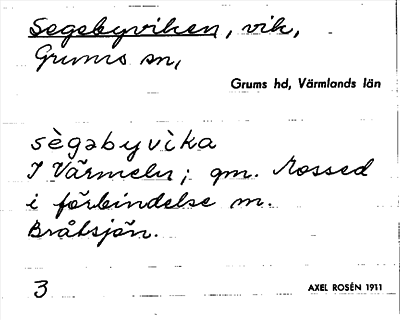 Segebyviken, vik,
Grums sn,
Grums hd, Värmlands län
sègəbyvìka
I Värmeln; gm. Rossed
i förbindelse m.
Bråtsjön.
3
AXEL ROSÉN 1911